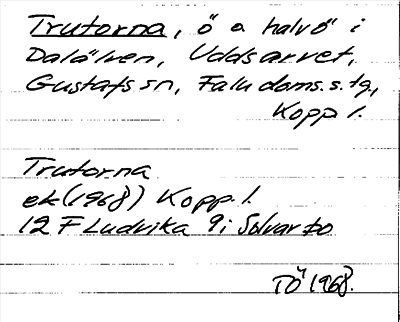 Trutorna, ö o halvö i
Dalälven, Uddsarvet,
Gustafs sn, Falu doms. s. tg.,
Kopp l.
Trutorna
ek (1968) Kopp. l.
12 F Ludvika 9i Solvarbo
TÖ 1968.